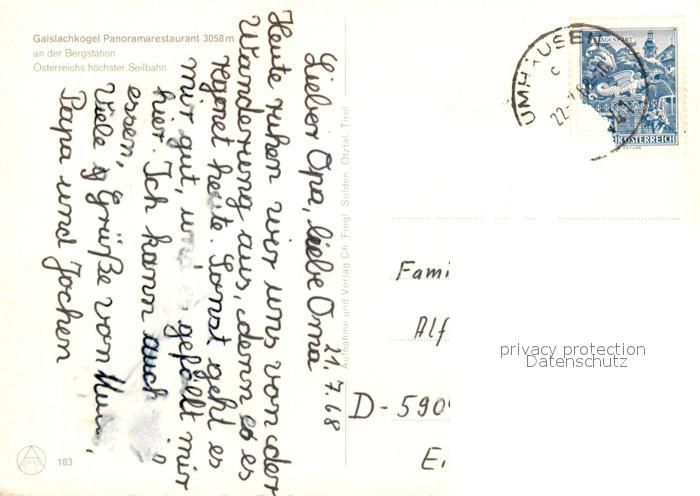 Gaislachkogel Panoramarestaurant 3058 m
an der Bergstation
Österreichs höchster Seilbahn
21.7.68
Lieber Opa, liebe Oma
Heute ruhen wir uns von der
Wanderung aus, denn es
regnet heute. Sonst geht es
mir gut, und es gefällt mir
hier. Ich kann auch
essen,
Viele Grüße von
Papa und Jochen
Aufnahme und Verlag Ch. Fiegl, Sölden, Ötztal, Tirol
UMHAUSEN
KLAGENFURT
ÖSTERREICH
Fami
Alf
D-590
privacy protection
Datenschutz
183